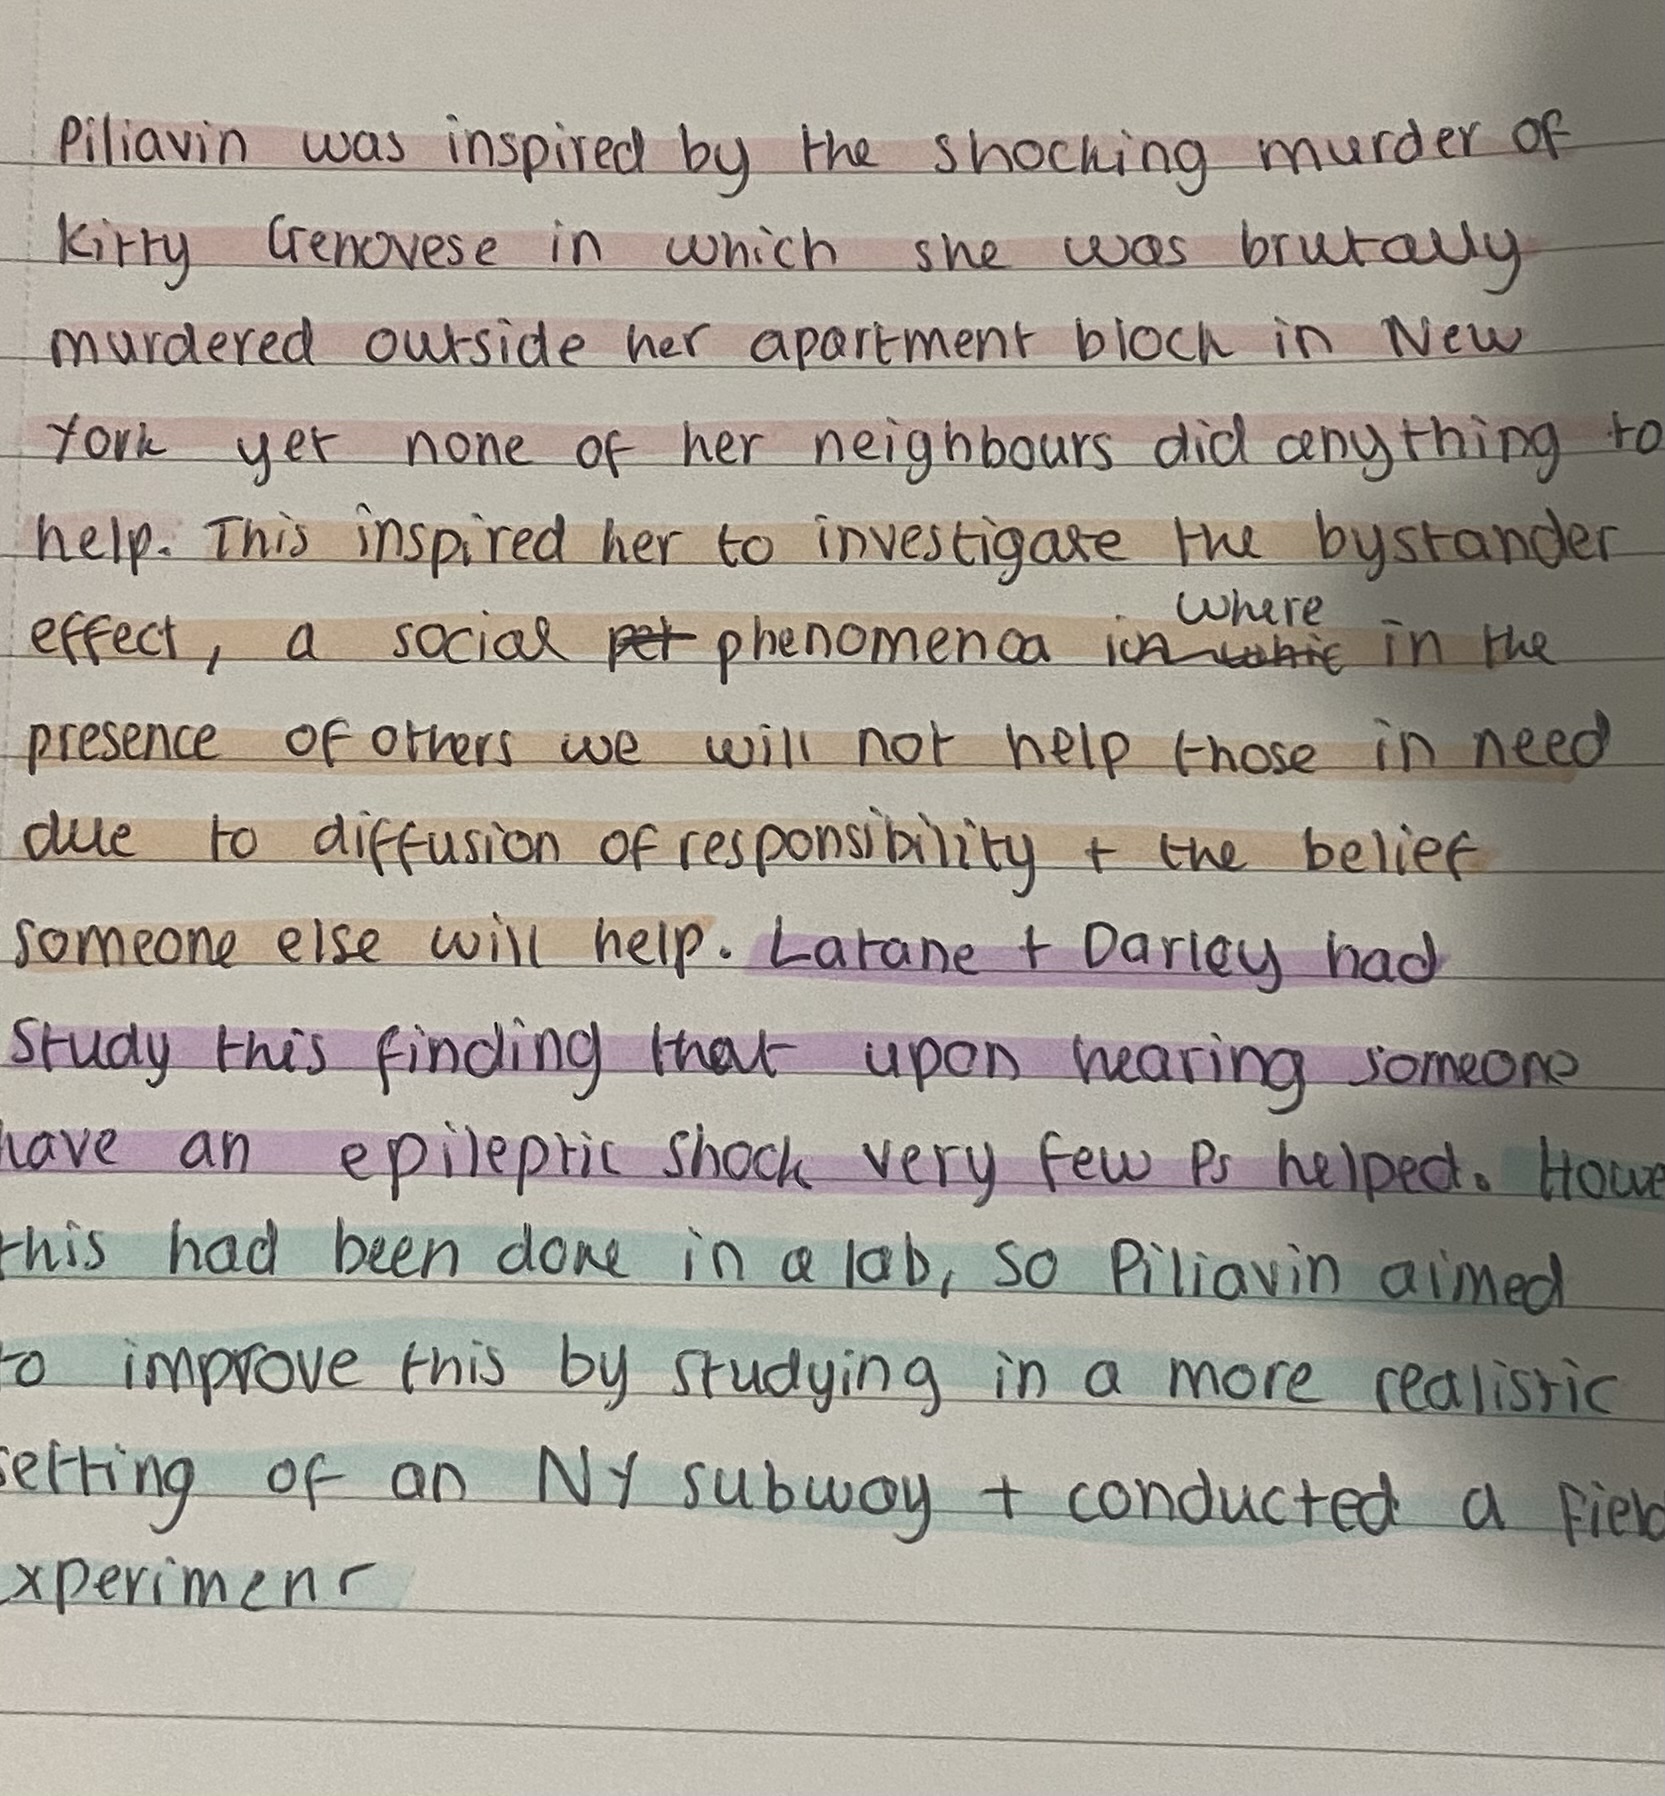 Piliavin was inspired by the shocking murder of
Kitty Genovese in which she was brutally
murdered outside her apartment block in New
York yet none of her neighbours did anything to
help. This inspired her to investigate the bystander
effect, a social phenomena where in the
presence of others we will not help those in need
due to diffusion of responsibility + the belief
someone else will help. Latane + Darley had
study this finding that upon hearing someone
have an epileptic shock very few Ps helped. Howe
this had been done in a lab, so Piliavin aimed
to improve this by studying in a more realistic
setting of an NY subway + conducted a field
xperiment